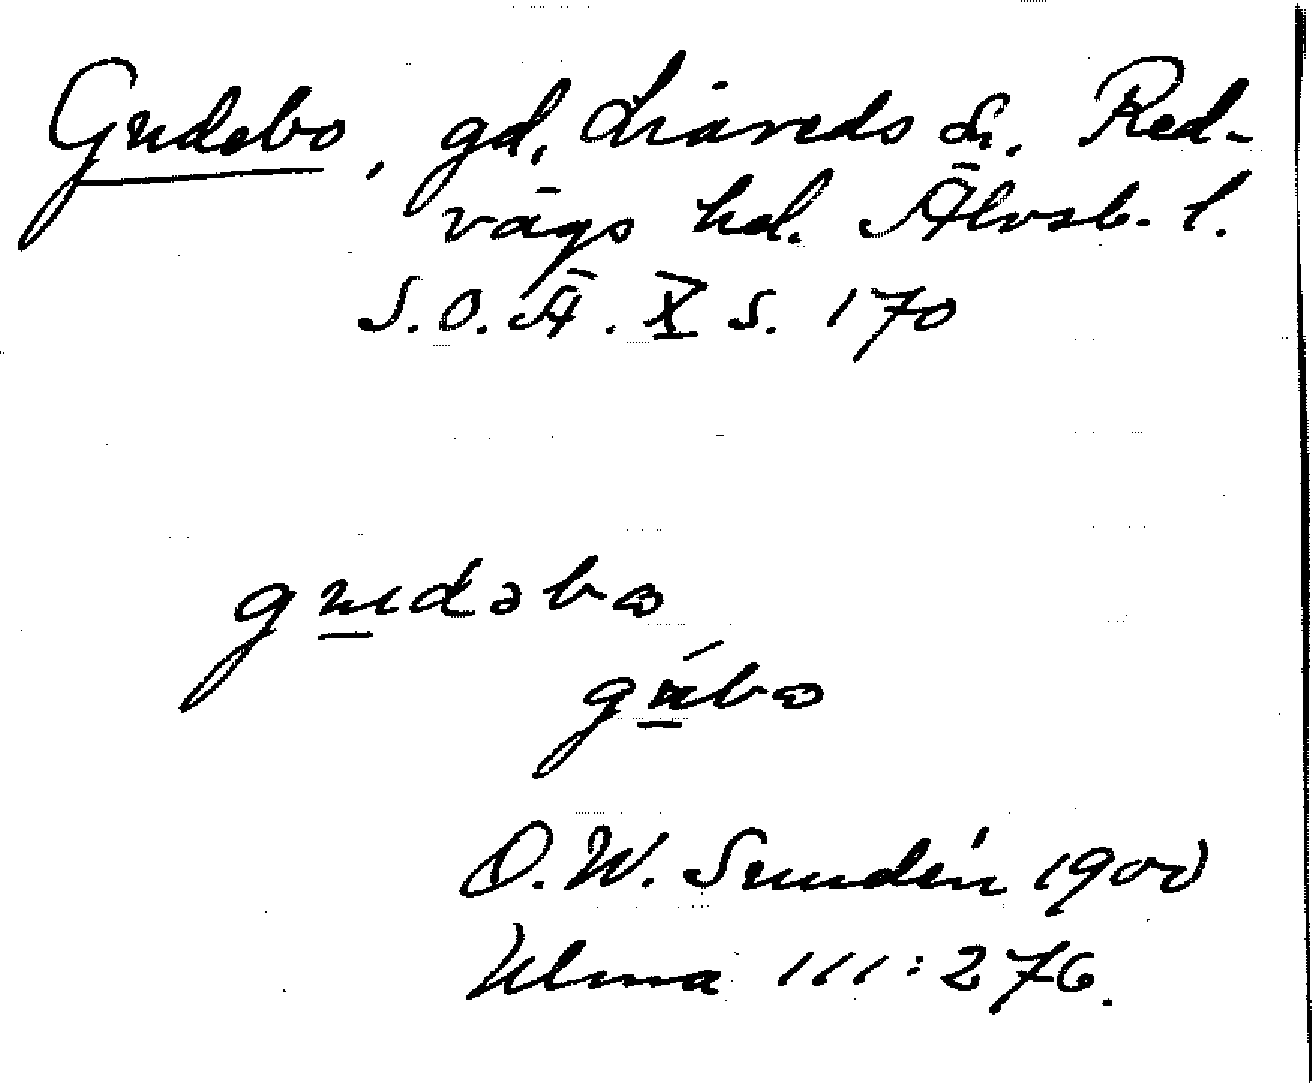 Gudebo, gd, Liareds sn. Red-
vägs hd. Älvsb. l.
S.O.Ä. X s. 170
gudəbo
gúbo
O.W. Sundén 1900
Ulma 111:276.